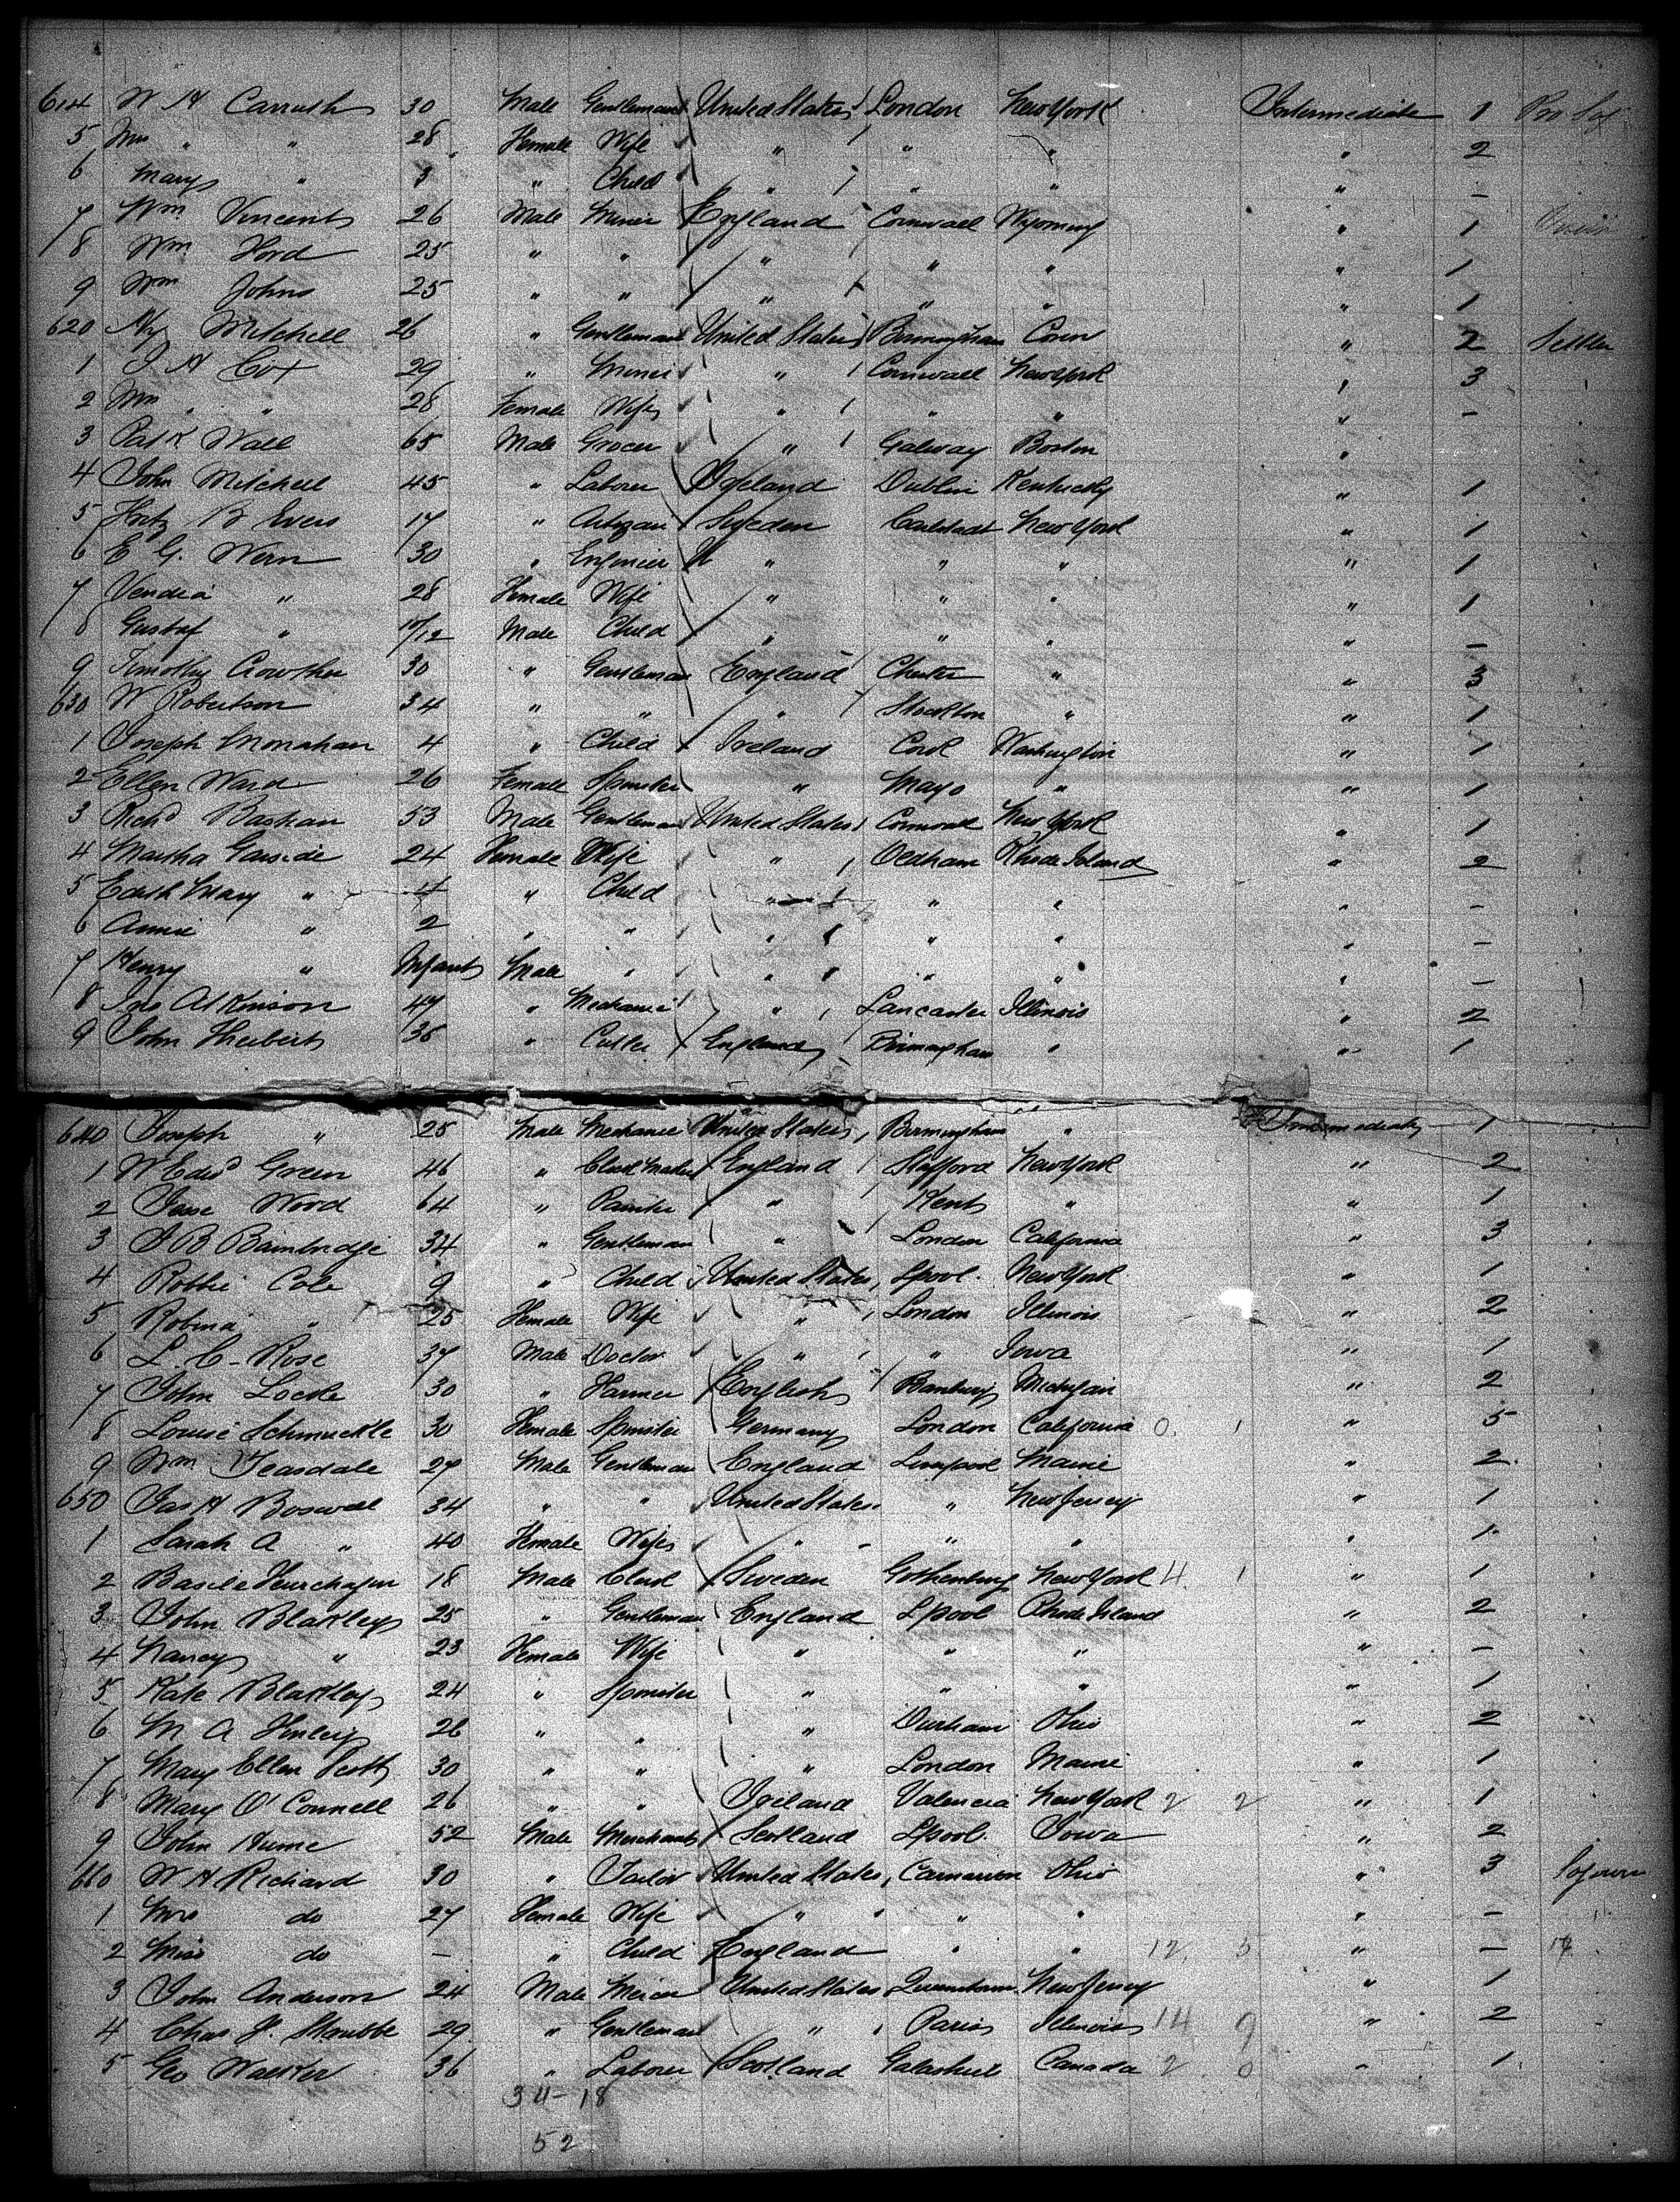 614 W H Carruth 30 Male Gentleman United States London New York Intermediate 1
5 Mrs " " 28 Female Wife " " " " 2
6 Mary " 3 " Child " " " " -
7 Wm Vincent 26 Male Miner England Cornwall Wyoming " 1
8 Wm Ford 25 " " " " " " 1
9 Wm Johns 25 " " " " " " 1
620 Mitchell 26 " Gentleman United States Birmingham Conn " 2
1 J H Cox 29 " Miner " Cornwall New York " 3
2 Mrs " " 28 Female Wife " " " " -
3 Patk Wall 65 Male Grocer " Galway Boston "
4 John Mitchell 45 " Laborer Ireland Dublin Kentucky " 1
5 B Evers 17 " Artizan Sweden Carlstadt New York " 1
6 E G. Wern 30 " Engineer " " " " 1
7 " 28 Female Wife " " " " 1
8 Gustaf " 10/12 Male Child " " " " -
9 Timothy Crowther 30 " Gentleman England Chester " " 3
630 W Robertson 34 " " " Stockton " " 1
1 Joseph Monahan 4 " Child Ireland Cork Washington " 1
2 Ellen Ward 26 Female Spinster " Mayo " " 1
3 Richd 53 Male Gentleman United States Cornwall New York " 1
4 Martha Garside 24 Female Wife " Oldham Rhode Island " 2
5 Edith Mary " 4 " Child " " " " -
6 Annie " 2 " " " " " " -
7 Henry " Infant Male " " " " " -
8 Jno Atkinson 47 " Mechanic " Lancaster Illinois " 2
9 John Herbert 36 " Cutler England Birmingham " " 1
640 Joseph " 25 Male Mechanic United States Birmingham " Intermediate 1
1 W Edwd Green 46 " England Stafford New York " 2
2 Jesse Wood 64 " Painter " Kent " " 1
3 J B Bambridge 34 " Gentleman " London California " 3
4 Robbie Cole 9 " Child United States Lpool. New York " 1
5 Robina " 25 Female Wife " London Illinois " 2
6 L. C. Rose 37 Male Doctor " " Iowa " 1
7 John Locke 30 " Farmer English Banbury Michigan " 2
8 Louise Schmuckle 30 Female Spinster Germany London California 0 1 " 5
9 Wm Teasdale 27 Male Gentleman England Liverpool Maine " 2
650 Jas H Boswell 34 " " United States " New Jersey " 1
1 Sarah A " 40 Female Wife " " " " 1
2 Basile 18 Male Clerk Sweden Gothenburg New York 4 1 " 1
3 John Blakley 25 " Gentleman England Lpool Rhode Island " 2
4 Nancy " 23 Female Wife " " " " -
5 Kate Blakley 24 " Spinster " " " " 1
6 M A 26 " " " Durham Ohio " 2
7 Mary Ellen 30 " " " London Maine " 1
8 Mary O'Connell 26 " " Ireland Valencia New York 2 2 " 1
9 John Hume 52 Male Merchant Scotland Lpool. Iowa " 2
660 W H Richard 30 " Tailor United States Carnarvon Ohio " 3 Sojourn
1 Mrs do 27 Female Wife " " " " -
2 Miss do - " Child England " " 12 5 " -
3 John Anderson 24 Male United States Queenstown New Jersey " 1
4 Chas J. 29 " Gentleman " Paris Illinois 14 9 " 2
5 Geo Walker 36 " Laborer Scotland Galashiels Canada 2 0 " 1
34-18
52